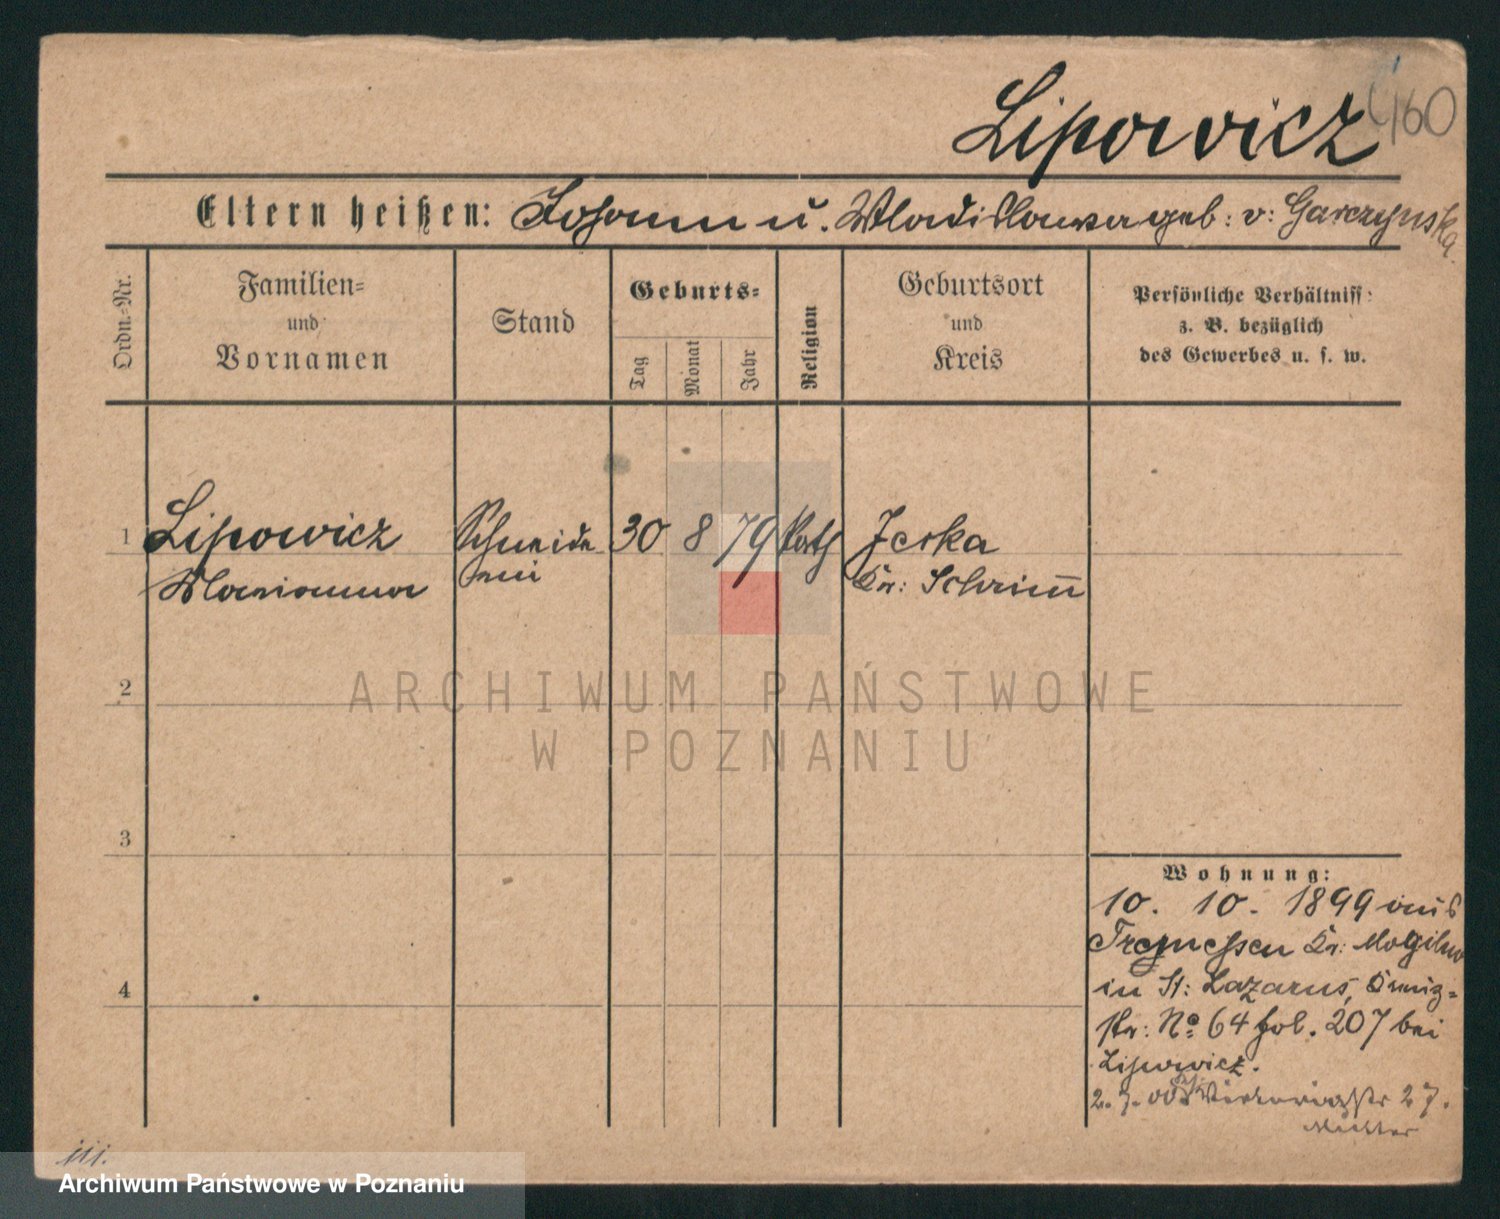 Lipowicz
460
Eltern heißen: Johann u. Wladislawa geb: v: Garczynska.
Ordn.-Nr.
Familien-
und
Vornamen
Stand
Geburts-
Tag
Monat
Jahr
Religion
Geburtsort
und
Kreis
Persönliche Verhältniss
z. B. bezüglich
des Gewerbes u. s. w.
1 Lipowicz Schneide 30 8 79 kath Jerka
Marianna rin Kr: Schrimm
2
ARCHIWUM PAŃSTWOWE
W POZNANIU
3
4
Wohnung:
10. 10. 1899 aus
Tremessen Kr: Mogilno
in St: Lazarus,
str: No 64 fol. 207 bei
Lipowicz.
2. 7. 00 27.
Mutter
Archiwum Państwowe w Poznaniu